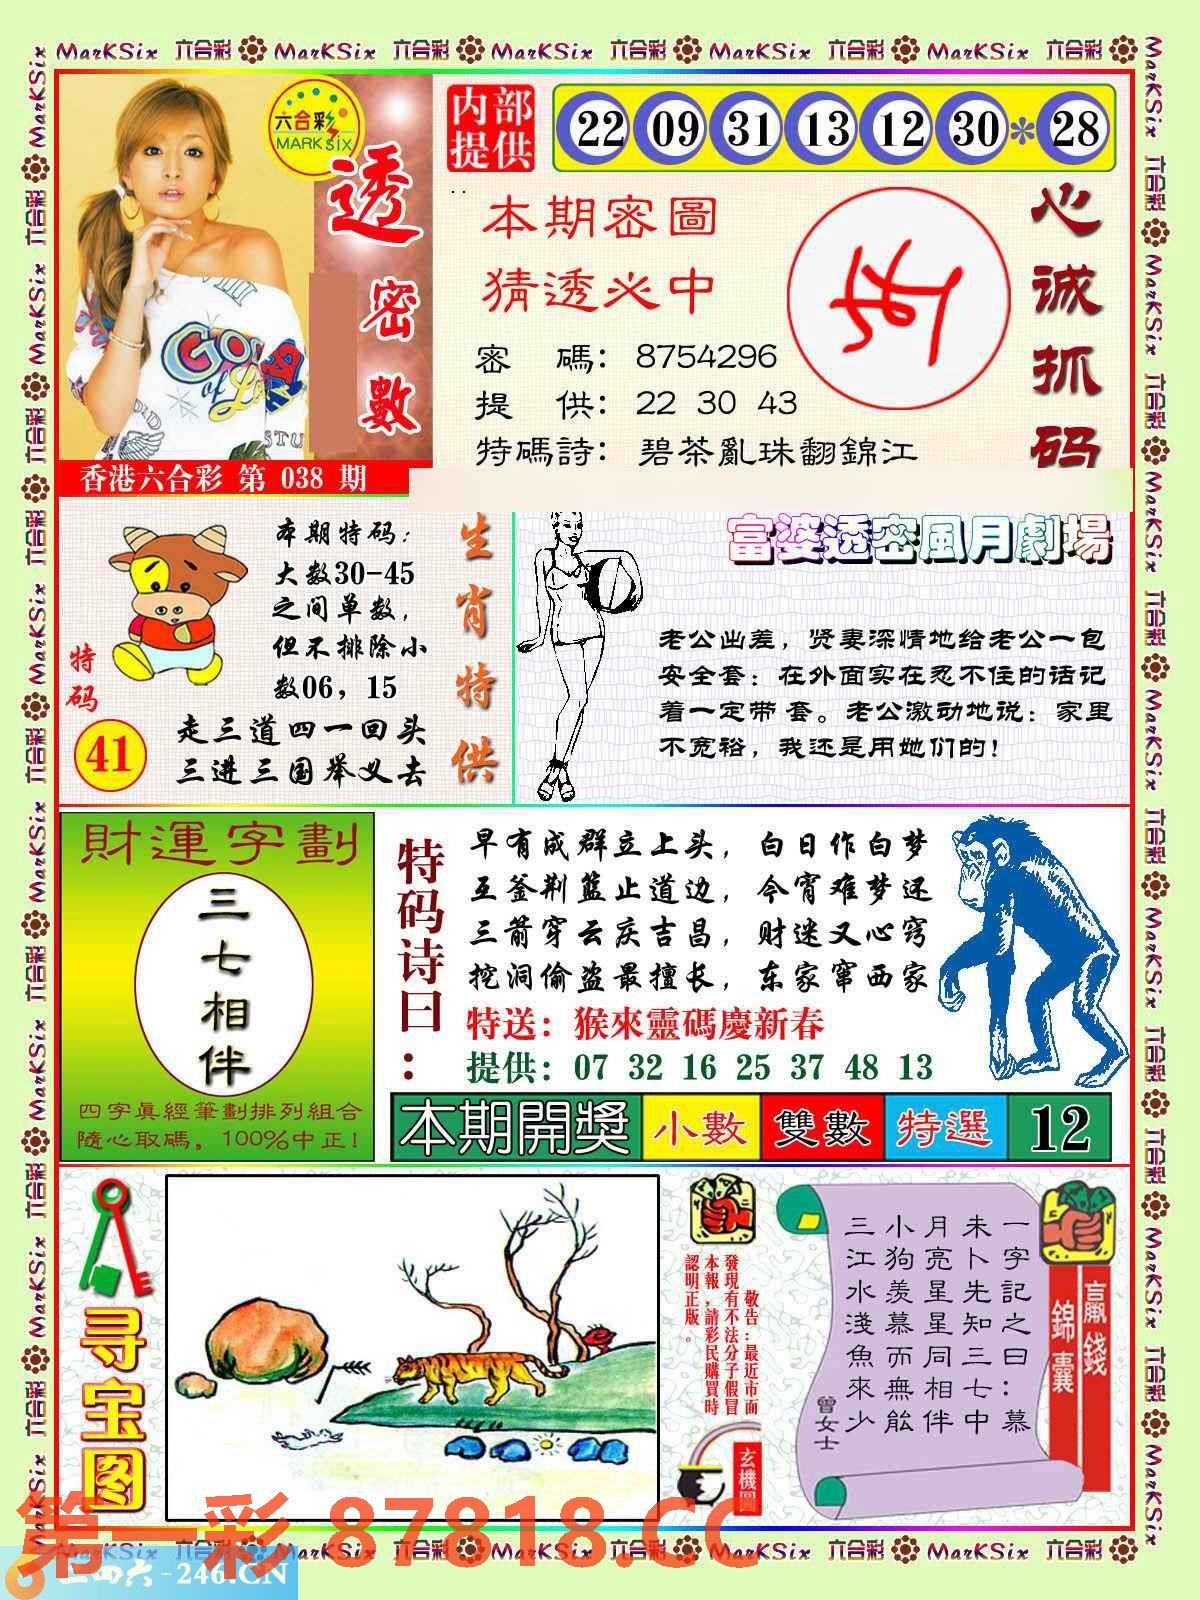 MarKSix 六合彩 MarKSix 六合彩 MarKSix 六合彩 MarKSix 六合彩 MarKSix 六合彩
六合彩
MARK SIX
透密數
香港六合彩 第 038 期
内部提供
22 09 31 13 12 30 * 28
本期密圖
猜透必中
密 碼： 8754296
提 供： 22 30 43
特碼詩： 碧茶亂珠翻錦江
心诚抓码
本期特码：
大数30-45
之间单数，
但不排除小
数06，15
特码
41
走三道四一回头
三进三国举义去
生肖特供
富婆透密風月劇場
老公出差，贤妻深情地给老公一包
安全套：在外面实在忍不住的话记
着一定带 套。老公激动地说：家里
不宽裕，我还是用她们的！
財運字劃
三七相伴
四字眞經筆劃排列組合
隨心取碼，100%中正！
特码诗曰：
早有成群立上头，白日作白梦
互釜荆篮止道边，今宵难梦还
三箭穿云庆吉昌，财迷又心窍
挖洞偷盗最擅长，东家窜西家
特送：猴來靈碼慶新春
提供：07 32 16 25 37 48 13
本期開獎 小數 雙數 特選 12
寻宝图
敬告：最近市面
發現有不法分子假冒
本報，請彩民購買時
認明正版。
玄機圖
一字記之曰：慕
未卜先知三七中
月亮星星同相伴
小狗羨慕而無能
三江水淺魚來少
曾女士
贏錢
錦囊
第一彩 87818.CC
-246.CN
MarKSix 六合彩 MarKSix 六合彩 MarKSix 六合彩 MarKSix 六合彩 MarKSix